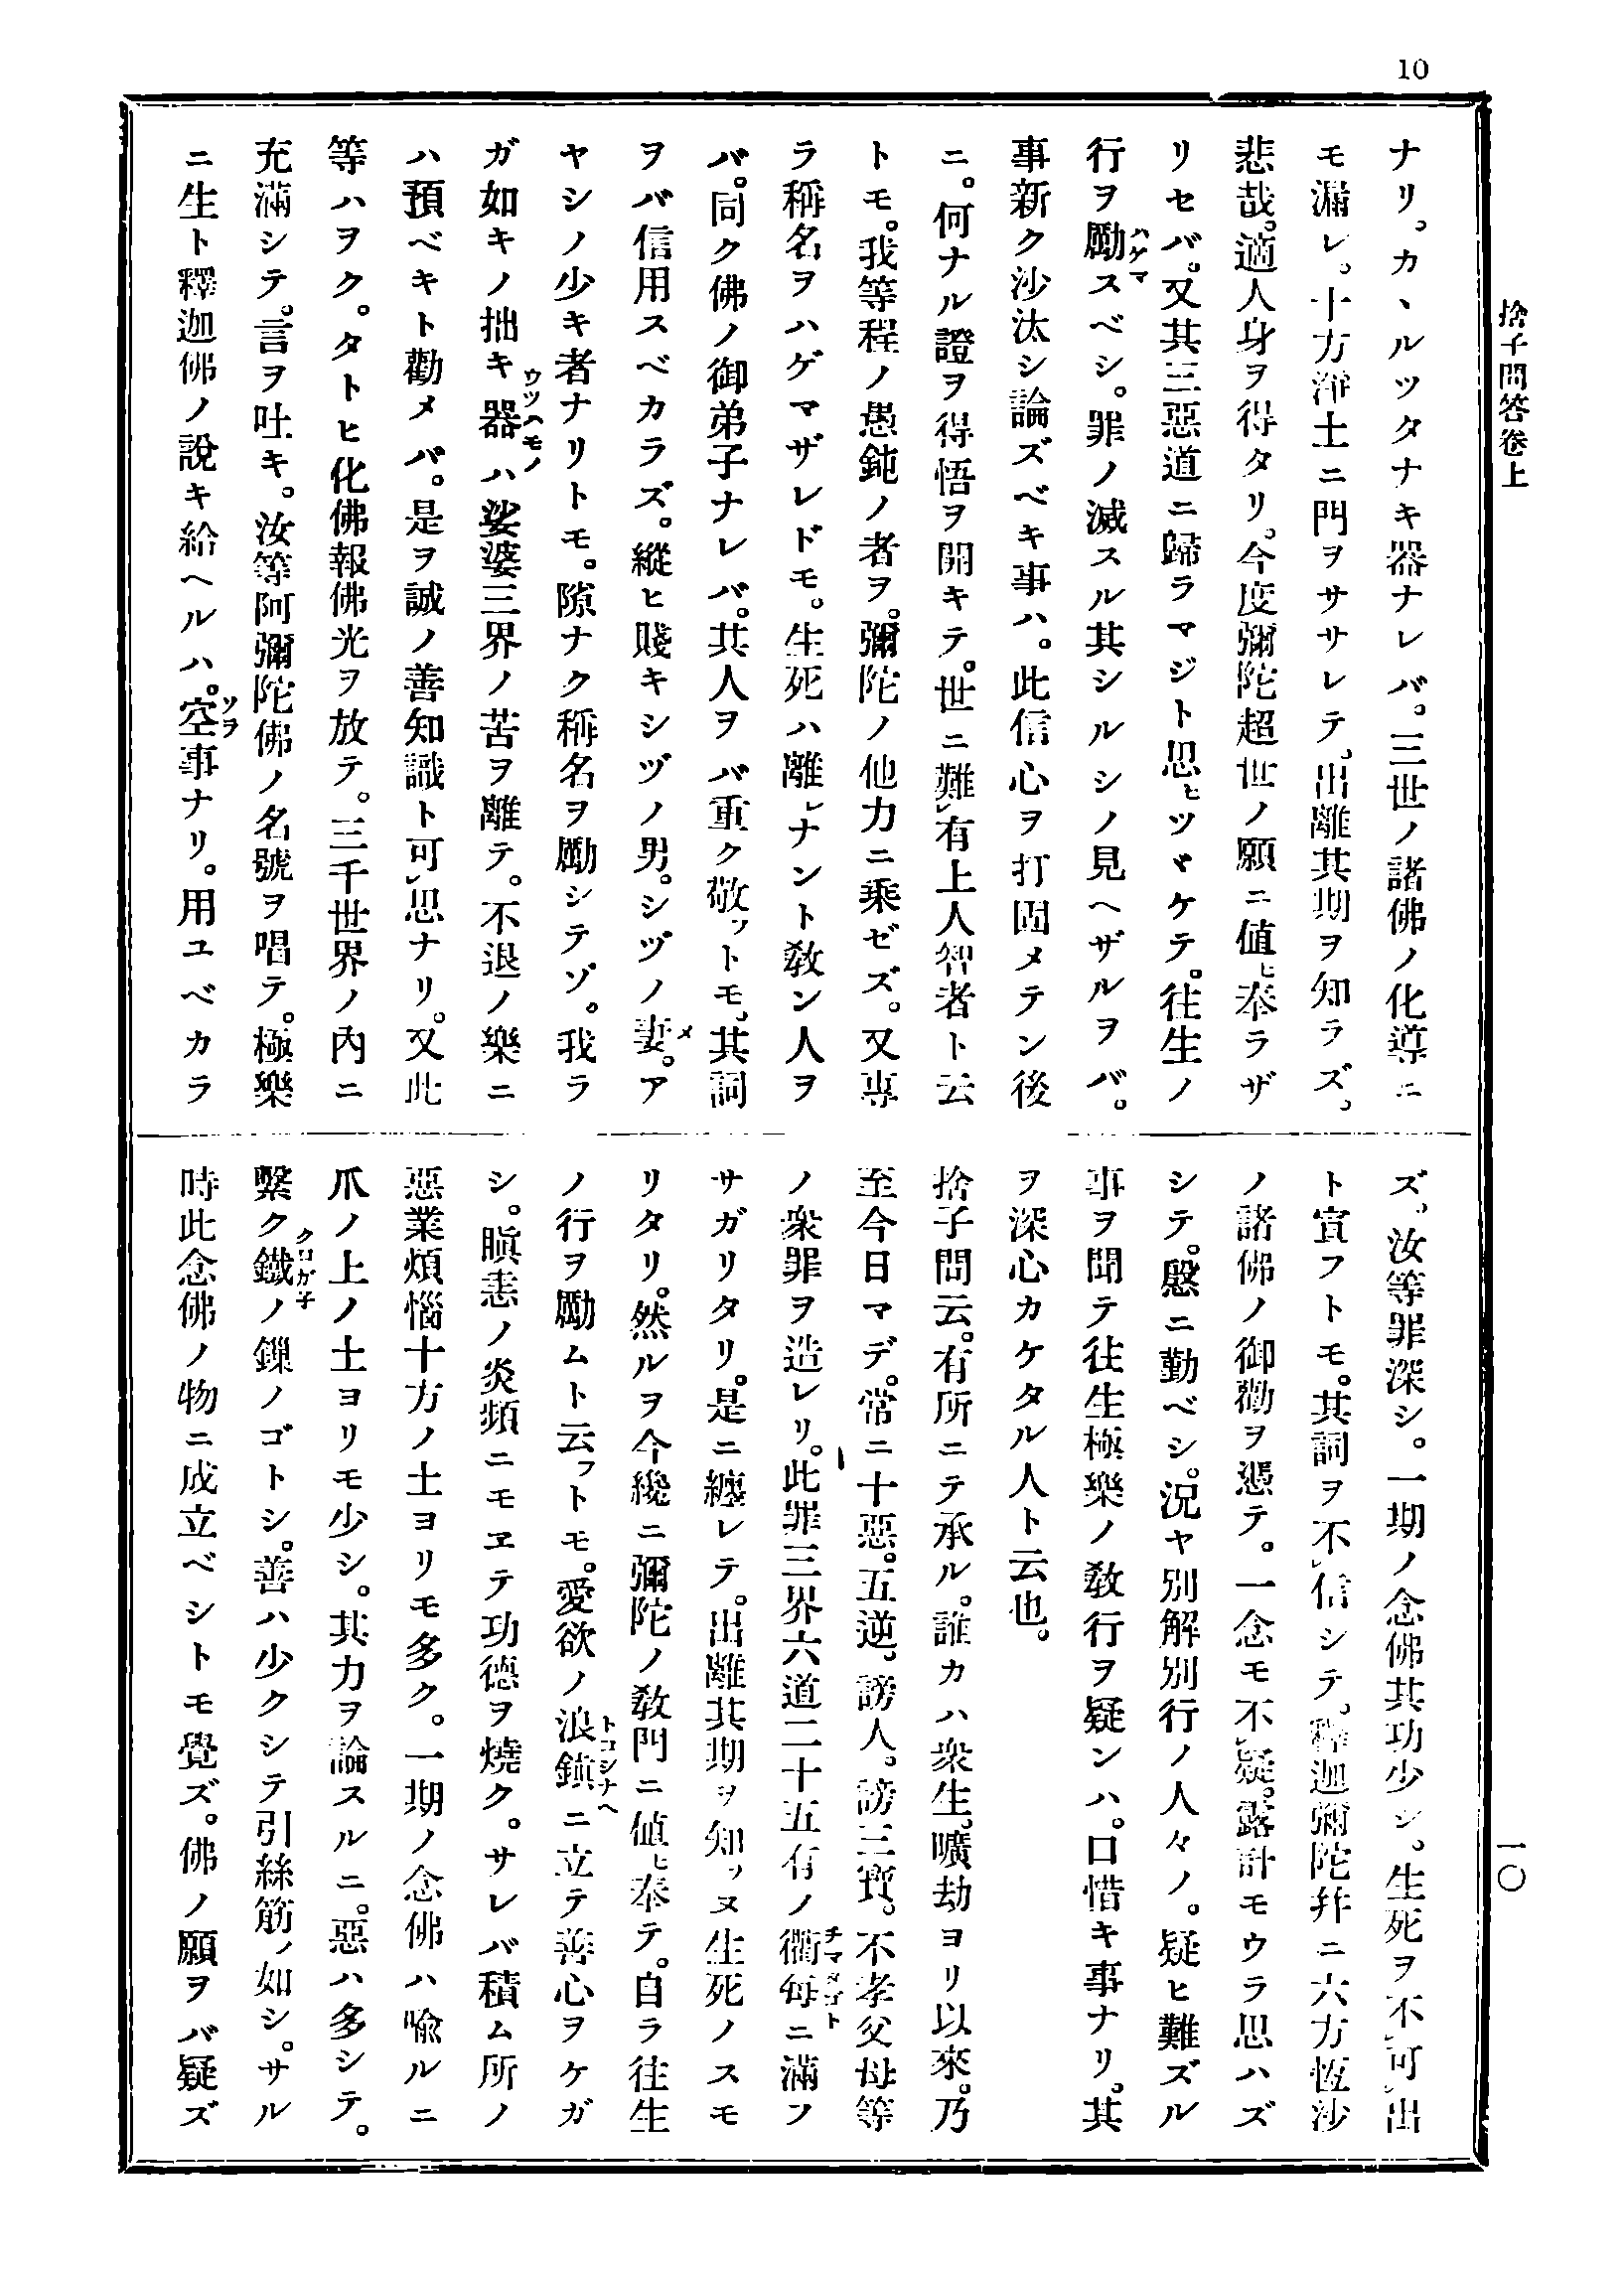 10
捨子問答卷上
ナリ。カヽルツタナキ器ナレバ。三世ノ諸佛ノ化導ニ
モ漏レ。十方淨土ニ門ヲササレテ。出離其期ヲ知ラズ。
悲哉。適人身ヲ得タリ。今度彌陀超世ノ願ニ値ヒ奉ラザ
リセバ。又其三惡道ニ歸ラマジト思ヒツヾケテ。往生ノ
行ヲ勵ハゲマスベシ。罪ノ滅スル其シルシノ見ヘザルヲバ。
事新ク沙汰シ論ズベキ事ハ。此信心ヲ打固メテン後
ニ。何ナル證ヲ得悟ヲ開キテ。世ニ難レ有上人智者ト云
トモ。我等程ノ愚鈍ノ者ヲ。彌陀ノ他力ニ乘ゼズ。又專
ラ稱名ヲハゲマザレドモ。生死ハ離レナント敎ン人ヲ
バ。同ク佛ノ御弟子ナレバ。其人ヲバ重ク敬フトモ。其詞
ヲバ信用スベカラズ。縱ヒ賤キシヅノ男。シヅノ妻メ。ア
ヤシノ少キ者ナリトモ。隙ナク稱名ヲ勵シテゾ。我ラ
ガ如キノ拙キ器ウツハモノハ娑婆三界ノ苦ヲ離テ。不退ノ樂ニ
ハ預ベキト勸メバ。是ヲ誠ノ善知識ト可レ思ナリ。又此
等ハヲク。タトヒ化佛報佛光ヲ放テ。三千世界ノ內ニ
充滿シテ。言ヲ吐キ。汝等阿彌陀佛ノ名號ヲ唱テ。極樂
ニ生ト釋迦佛ノ說キ給ヘルハ。空ソラ事ナリ。用ユベカラ
ズ。汝等罪深シ。一期ノ念佛其功少シ。生死ヲ不レ可レ出
ト宣フトモ。其詞ヲ不レ信シテ。釋迦彌陀幷ニ六方恆沙
ノ諸佛ノ御勸ヲ憑テ。一念モ不レ疑。露計モウラ思ハズ
シテ。慇ニ勤ベシ。況ヤ別解別行ノ人々ノ。疑ヒ難ズル
事ヲ聞テ往生極樂ノ敎行ヲ疑ンハ。口惜キ事ナリ。其
ヲ深心カケタル人ト云也。
捨子問云。有所ニテ承ル。誰カハ衆生。曠劫ヨリ以來。乃
至今日マデ。常ニ十惡。五逆。謗人。謗三寳。不孝父母等
ノ衆罪ヲ造レリ。此罪三界六道二十五有ノ衢每チマタゴトニ滿フ
サガリタリ。是ニ纏レテ。出離其期ヲ知ラヌ生死ノスモ
リタリ。然ルヲ今纔ニ彌陀ノ敎門ニ値ヒ奉テ。自ラ往生
ノ行ヲ勵ムト云フトモ。愛欲ノ浪鎮トコシナヘニ立テ善心ヲケガ
シ。瞋恚ノ炎頻ニモヱテ功德ヲ燒ク。サレバ積ム所ノ
惡業煩惱十方ノ土ヨリモ多ク。一期ノ念佛ハ喩ルニ
爪ノ上ノ土ヨリモ少シ。其力ヲ論スルニ。惡ハ多シテ。
繫ク鐵クロガネノ鏁ノゴトシ。善ハ少クシテ引絲筋ノ如シ。サル
時此念佛ノ物ニ成立ベシトモ覺ズ。佛ノ願ヲバ疑ズ
一〇